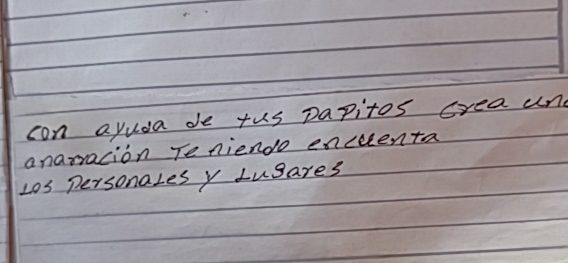 con ayuda de tus papitos crea una
anarración Teniendo encuenta
Los Personales y Lugares